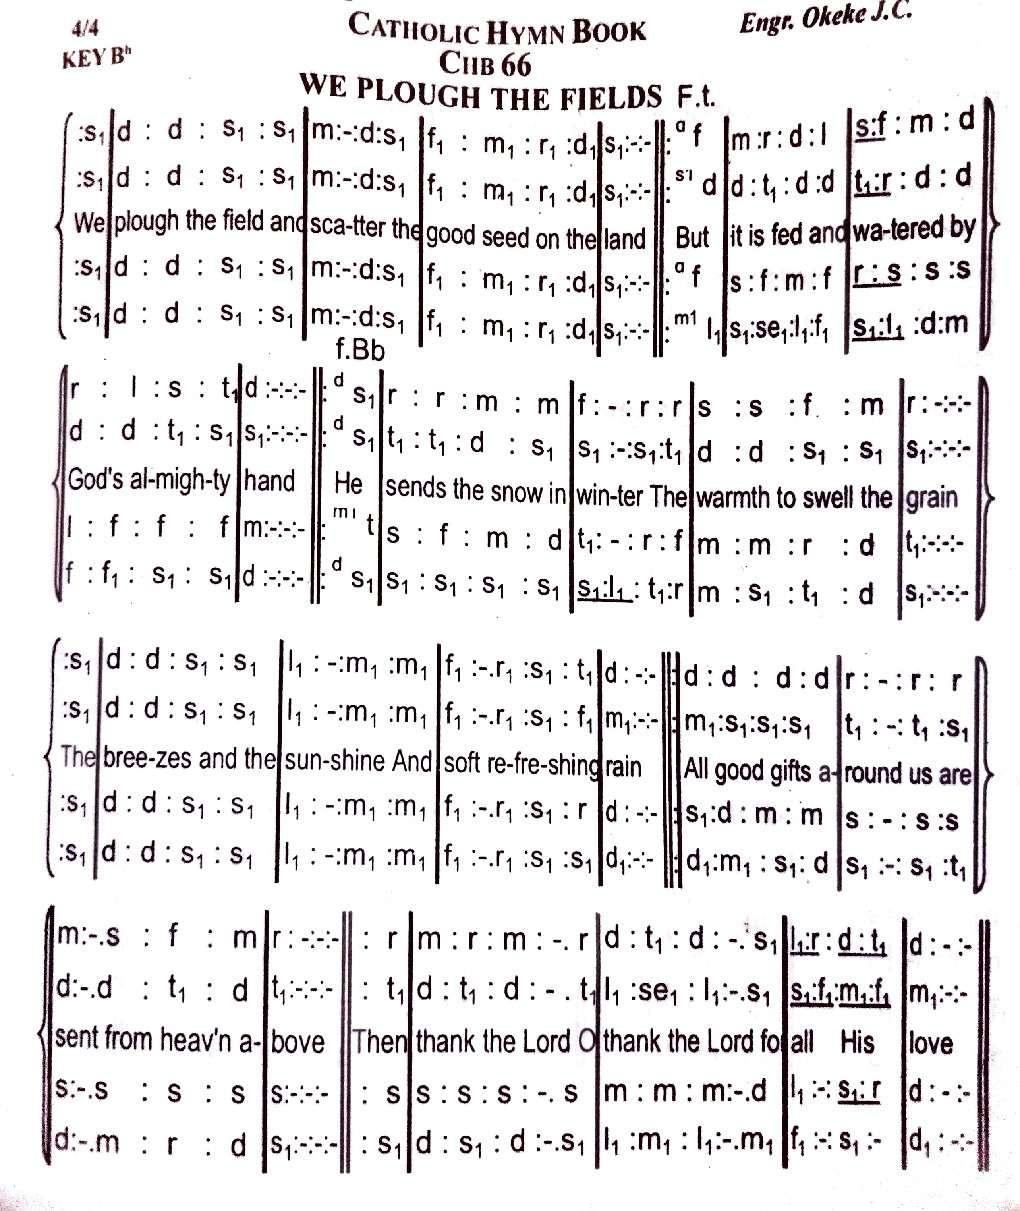 4/4 CATHOLIC HYMN BOOK Engr. Okeke J.C.
KEY Bb CHB 66
WE PLOUGH THE FIELDS F.t.
:s₁|d : d : s₁ : s₁|m:-:d:s₁|f₁ : m₁ : r₁ :d₁|s₁:-:-||: ᵈ f |m :r : d : l |s:f : m : d
:s₁|d : d : s₁ : s₁|m:-:d:s₁|f₁ : m₁ : r₁ :d₁|s₁:-:-||: ˢ¹ d |d : t₁ : d :d |t₁:r : d : d
We|plough the field and|sca-tter the|good seed on the|land || But |it is fed and|wa-tered by
:s₁|d : d : s₁ : s₁|m:-:d:s₁|f₁ : m₁ : r₁ :d₁|s₁:-:-||: ᵈ f |s : f : m : f |r : s : s :s
:s₁|d : d : s₁ : s₁|m:-:d:s₁|f₁ : m₁ : r₁ :d₁|s₁:-:-||: ᵐ¹ l₁|s₁:se₁:l₁:f₁ |s₁:l₁ :d:m
f.Bb
r : l : s : t₁|d :-:-:-||: ᵈ s₁|r : r : m : m |f : - : r : r |s : s : f : m |r : -:-:-
d : d : t₁ : s₁|s₁:-:-:-||: ᵈ s₁|t₁ : t₁ : d : s₁ |s₁ :-:s₁:t₁ |d : d : s₁ : s₁ |s₁:-:-:-
God's al-migh-ty |hand || He |sends the snow in|win-ter The|warmth to swell the |grain
l : f : f : f |m:-:-:-||: ᵐ¹ t |s : f : m : d |t₁: - : r : f |m : m : r : d |t₁:-:-:-
f : f₁ : s₁ : s₁|d :-:-:-||: ᵈ s₁|s₁ : s₁ : s₁ : s₁ |s₁:l₁ : t₁:r |m : s₁ : t₁ : d |s₁:-:-:-
:s₁|d : d : s₁ : s₁ |l₁ : -:m₁ :m₁ |f₁ :-.r₁ :s₁ : t₁|d : -:-||:d : d : d : d|r : - : r : r
:s₁|d : d : s₁ : s₁ |l₁ : -:m₁ :m₁ |f₁ :-.r₁ :s₁ : f₁|m₁:-:-||:m₁:s₁:s₁:s₁ |t₁ : -: t₁ :s₁
The|bree-zes and the|sun-shine And|soft re-fre-shing|rain || All good gifts a-|round us are
:s₁|d : d : s₁ : s₁ |l₁ : -:m₁ :m₁ |f₁ :-.r₁ :s₁ : r |d : -:-||:s₁:d : m : m |s : - : s :s
:s₁|d : d : s₁ : s₁ |l₁ : -:m₁ :m₁ |f₁ :-.r₁ :s₁ :s₁ |d₁:-:-||:d₁:m₁ : s₁: d |s₁ :-: s₁ :t₁
m:-.s : f : m|r : -:-:-|| : r |m : r : m : -. r |d : t₁ : d : -. s₁|l₁:r : d : t₁ |d : - :-
d:-.d : t₁ : d |t₁:-:-:-|| : t₁|d : t₁ : d : - . t₁|l₁ :se₁ : l₁:-.s₁ |s₁:f₁:m₁:f₁ |m₁:-:-
sent from heav'n a-|bove || Then|thank the Lord O|thank the Lord fo|all His |love
s:-.s : s : s |s:-:-:-|| : s |s : s : s : -. s |m : m : m:-.d |l₁ :-: s₁: r |d : - :-
d:-.m : r : d |s₁:-:-:-|| : s₁|d : s₁ : d :-.s₁ |l₁ :m₁ : l₁:-.m₁ |f₁ :-: s₁ :- |d₁ : -:-